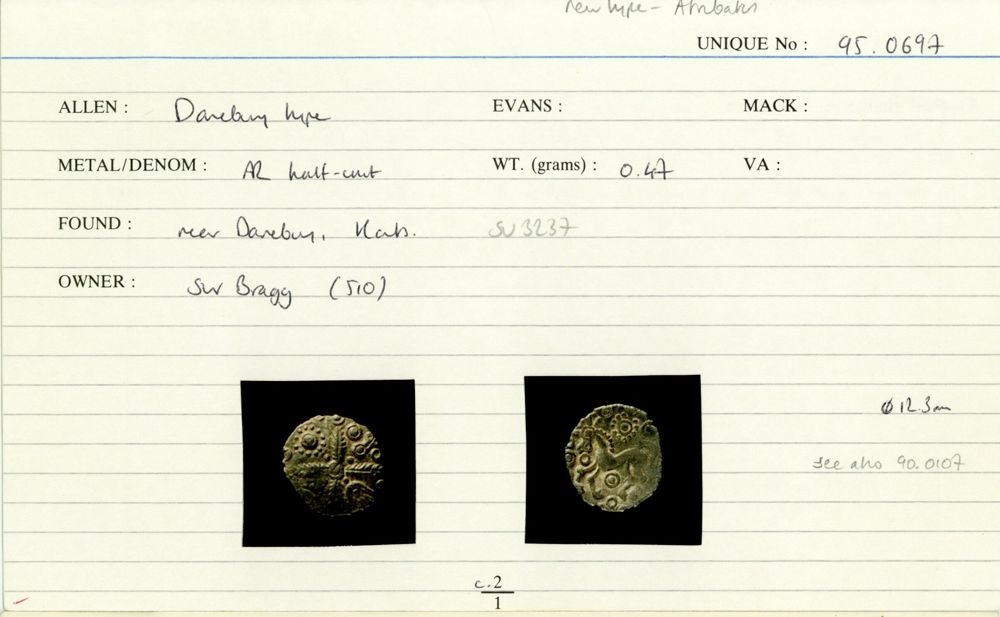 new type - Atrebatic
UNIQUE No : 95.0697
ALLEN : Danebury type EVANS : MACK :
METAL/DENOM : AR half-unit WT. (grams) : 0.47 VA :
FOUND : near Danebury, Hants. SU 3237
OWNER : Bragg (510)
ø 12.3mm
see also 90.0107
c.2
1